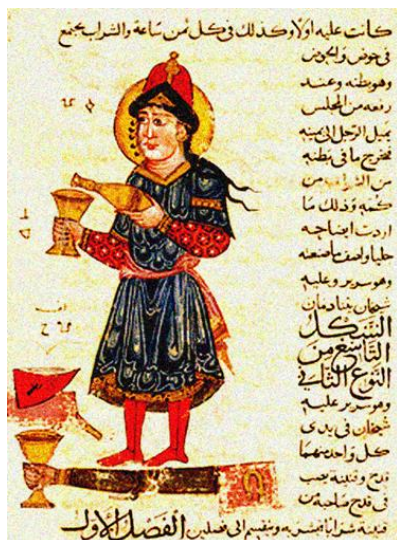 كانت عليه اولا وكذلك فى كل ثمن ساعة والشراب يجتمع
فى حوض والحوض
وهو بطنه وعند
رفعه من المجلس
يميل الرجل الى يمينه
فيخرج ما فى بطنه
من الشراب من
كمه وذلك ما
اردت ايضاحه
جليا واصف ما صنعته
وهو سرير وعليه
شيخان يتنادمان
الشكل
التاسع من
النوع الثانى
وهو سرير عليه
شيخان فى يدى
كل واحد منهما
قدح وقنينة يصب
فى قدح صاحبه من
قنينته شرابا فيشربه وينقسم الى فصلين الفصل الاول